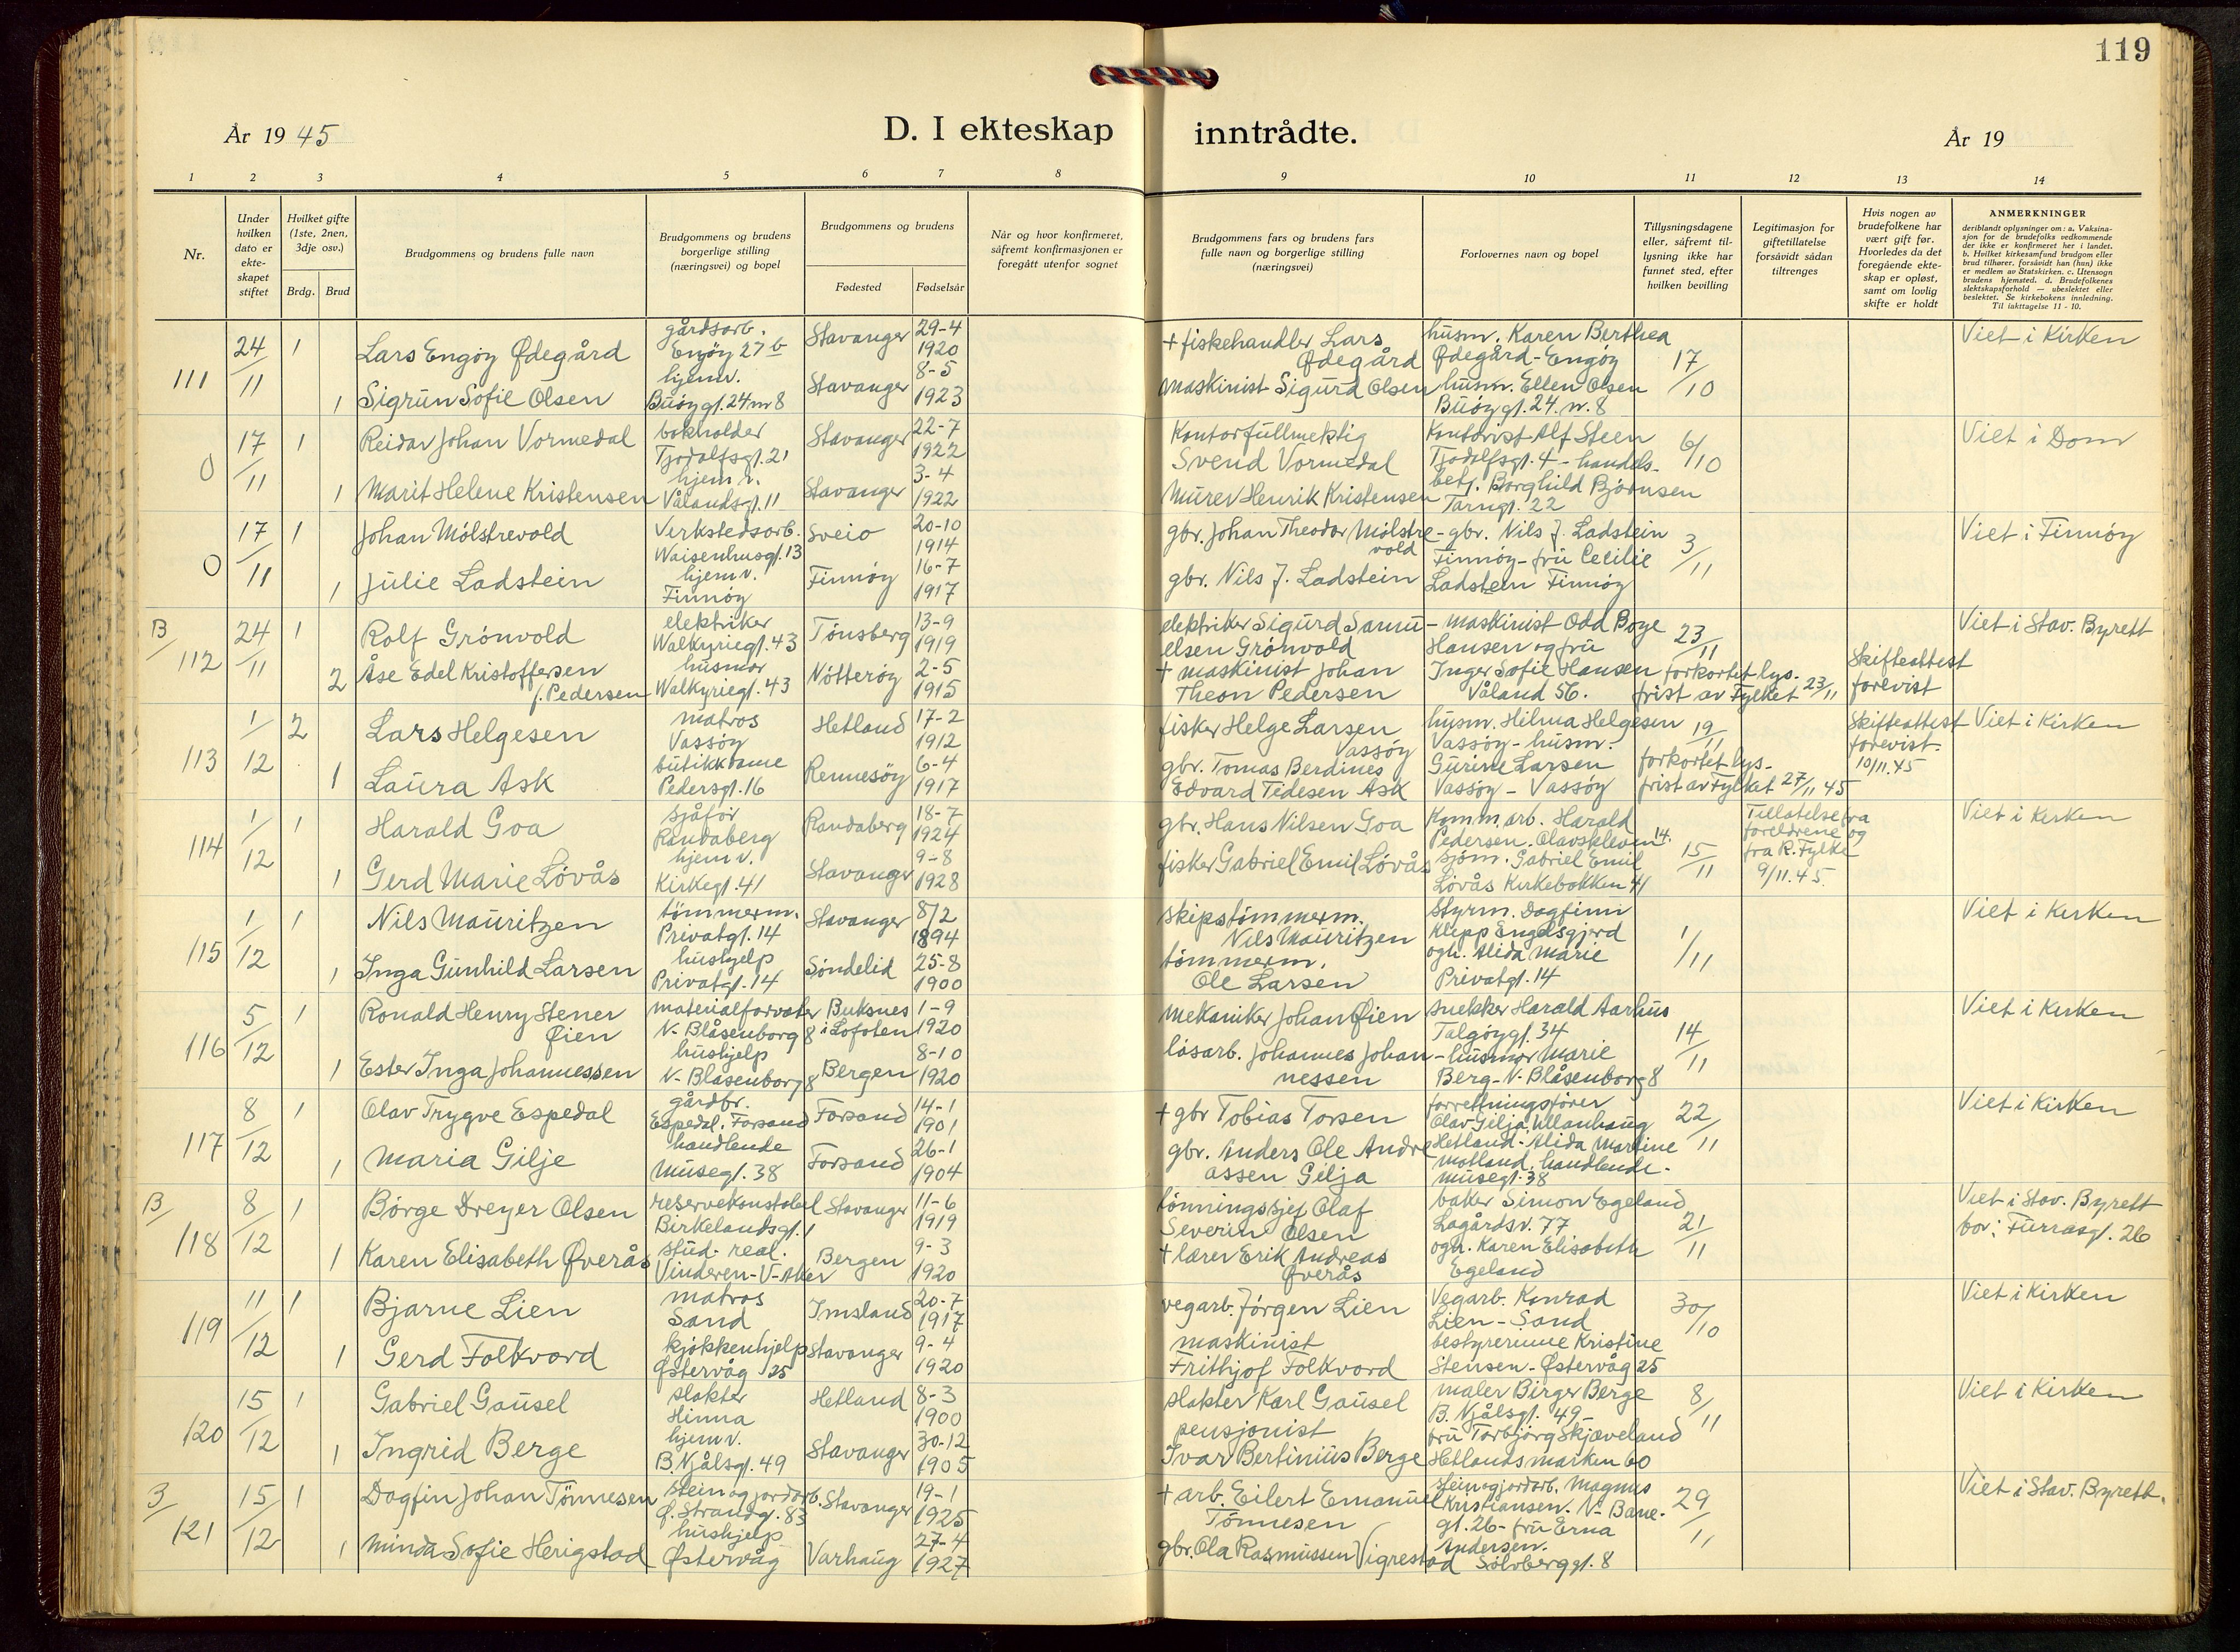 119
År 1945
D. I ekteskap inntrådte.
År 19
1 2 3 4 5 6 7 8 9 10 11 12 13 14
Nr.
Under hvilken dato er ekte-skapet stiftet
Hvilket gifte (1ste, 2nen, 3dje osv.)
Brdg. Brud
Brudgommens og brudens fulle navn
Brudgommens og brudens borgerlige stilling (næringsvei) og bopel
Brudgommens og brudens
Fødested Fødselsår
Når og hvor konfirmeret, såfremt konfirmasjonen er foregått utenfor sognet
Brudgommens fars og brudens fars fulle navn og borgerlige stilling (næringsvei)
Forlovernes navn og bopel
Tillysningsdagene eller, såfremt til-lysning ikke har funnet sted, efter hvilken bevilling
Legitimasjon for giftetillatelse forsåvidt sådan tiltrenges
Hvis nogen av brudefolkene har vært gift før. Hvorledes da det foregående ekte-skap er opløst, samt om lovlig skifte er holdt
ANMERKNINGER
deriblandt oplysninger om: a. Vaksina-sjon for de brudefolks vedkommende der ikke er konfirmeret her i landet. b. Hvilket kirkesamfund brudgom eller brud tilhører, forsåvidt han (hun) ikke er medlem av Statskirken. c. Utensogn brudens hjemsted. d. Brudefolkenes slektskapsforhold — ubeslektet eller beslektet. Se kirkebokens innledning. Til iakttagelse 11 - 10.
111 24/11 1 Lars Engøy Ødegård gårdsarb. Engøy 27 b Stavanger 29-4 1920 + fiskehandler Lars Ødegård husm. Karen Berthea Ødegård - Engøy 17/10 Viet i Kirken
1 Sigrun Sofie Olsen hjemv. Buøygt. 24 nr 8 Stavanger 8-5 1923 maskinist Sigurd Olsen husm. Ellen Olsen Buøygt. 24. n. 8
0 17/11 1 Reidar Johan Vormedal bokholder Tjodolfsgt. 21 Stavanger 22-7 1922 Kontorfullmektig Svend Vormedal Kontorist Alf Steen Tjodolfsgt. 4 - handels- 6/10 Viet i Dom
1 Marit Helene Kristensen hjemv. Vålandsgt. 11 Stavanger 3-4 1922 Murer Henrik Kristensen betj. Borghild Bjørnsen Tarngt. 22
0 17/11 1 Johan Mølstrevold Verkstedsarb. Waisenhusgt. 13 Sveio 20-10 1914 gbr. Johan Theodor Mølstrevold gbr. Nils J. Ladstein Finnøy - fru Cecilie 3/11 Viet i Finnøy
1 Julie Ladstein hjemv. Finnøy Finnøy 16-7 1917 gbr. Nils J. Ladstein Ladstein Finnøy
B/112 24/11 1 Rolf Grønvold elektriker Walkyriegt. 43 Tønsberg 13-9 1919 elektriker Sigurd Samu-elsen Grønvold maskinist Odd Boye Hansen og fru 23/11 Viet i Stav. Byrett
2 Åse Edel Kristoffersen f. Pedersen husmor Walkyriegt. 43 Nøtterøy 2-5 1915 + maskinist Johan Theon Pedersen Inger Sofie Hansen Våland 56. forkortet lys-frist av Fylket 23/11 Skifteattest forevist
113 1/12 2 Lars Helgesen matros Vassøy Hetland 17-2 1912 fisker Helge Larsen Vassøy husm. Hilma Helgesen Vassøy - husm. 19/11 Skifteattest forevist 10/11.45 Viet i Kirken
1 Laura Ask butikkdame Pedersgt. 16 Rennesøy 6-4 1917 gbr. Tomas Berdines Edvard Tidesen Ask Gurine Larsen Vassøy - Vassøy forkortet lys-frist av Fylket 27/11 45
114 1/12 1 Harald Goa sjåfør Randaberg Randaberg 18-7 1924 gbr. Hans Nilsen Goa Komm. arb. Harald Pedersen. Olavskleven 14. 15/11 Tillatelse fra foreldrene og fra R. Fylke 9/11.45. Viet i Kirken
1 Gerd Marie Løvås hjemv. Kirkegt. 41 Stavanger 9-8 1928 fisker Gabriel Emil Løvås sjøm. Gabriel Emil Løvås Kirkebakken 41
115 1/12 1 Nils Mauritzen tømmerm. Privatgt. 14 Stavanger 8/2 1894 skipstømmerm. Nils Mauritzen Styrm. Dagfinn Klepp Engelsgjerd 1/11 Viet i Kirken
1 Inga Gunhild Larsen hushjelp Privatgt. 14 Søndelid 25-8 1900 tømmerm. Ole Larsen og h. Alida Marie Privatgt. 14
116 5/12 1 Ronald Henry Stener Øien materialforvalter N. Blåsenborg 8 Buksnes i Lofoten 1-9 1920 mekaniker Johan Øien snekker Harald Aarhus Talgøygt. 34 14/11 Viet i Kirken
1 Ester Inga Johannessen hushjelp N. Blåsenborg 8 Bergen 8-10 1920 løsarb. Johannes Johan-nessen husmor Marie Berg - N. Blåsenborg 8
117 8/12 1 Olav Trygve Espedal gårdbr. Espedal. Forsand Forsand 14-1 1901 + gbr Tobias Torsen forretningsfører Olav Gilja, Ullanhaug 22/11 Viet i Kirken
1 Maria Gilje handlende Musegt. 38 Forsand 26-1 1904 gbr. Anders Ole Andreassen Gilja Hetland - Alida Martine Motland, handlende - Musegt. 38
B/118 8/12 1 Børge Dreyer Olsen reservekonstabel Birkelandsgt. 1 Stavanger 11-6 1919 lønningssjef Olaf Severin Olsen baker Simon Egeland Lagårdsv. 77 21/11 Viet i Stav. Byrett bor: Furrasgt. 26
1 Karen Elisabeth Øverås stud. real. Vinderen - V-Aker Bergen 9-3 1920 + lærer Erik Andreas Øverås og h. Karen Elisabeth Egeland
119 11/12 1 Bjarne Lien matros Sand Imsland 20-7 1917 vegarb. Jørgen Lien Vegarb. Konrad Lien - Sand 30/10 Viet i Kirken
1 Gerd Folkvord kjøkkenhjelp Østervåg 25 Stavanger 9-4 1920 maskinist Frithjof Folkvord bestyrerinne Kristine Stensen - Østervåg 25
120 15/12 1 Gabriel Gausel slakter Hinna Hetland 8-3 1900 slakter Karl Gausel maler Birger Berge B. Njålsgt. 49 8/11 Viet i Kirken
1 Ingrid Berge hjemv. B. Njålsgt. 49 Stavanger 30-12 1905 pensjonist Ivar Bertinius Berge fru Torbjørg Skjæveland Hetlandsmarken 60
B/121 15/12 1 Dagfin Johan Tønnesen stein og jordarb. Ø. Strandg. 83 Stavanger 19-1 1925 + arb. Eilert Emanuel Tønnesen stein og jordarb. Magnus Kristiansen. N. Bane-gt. 26 - fru Erna 29/11 Viet i Stav. Byrett.
1 Minda Sofie Herigstad hushjelp Østervåg Varhaug 27-4 1927 gbr. Ola Rasmussen Vigrestad Andersen. Sølvberggt. 8